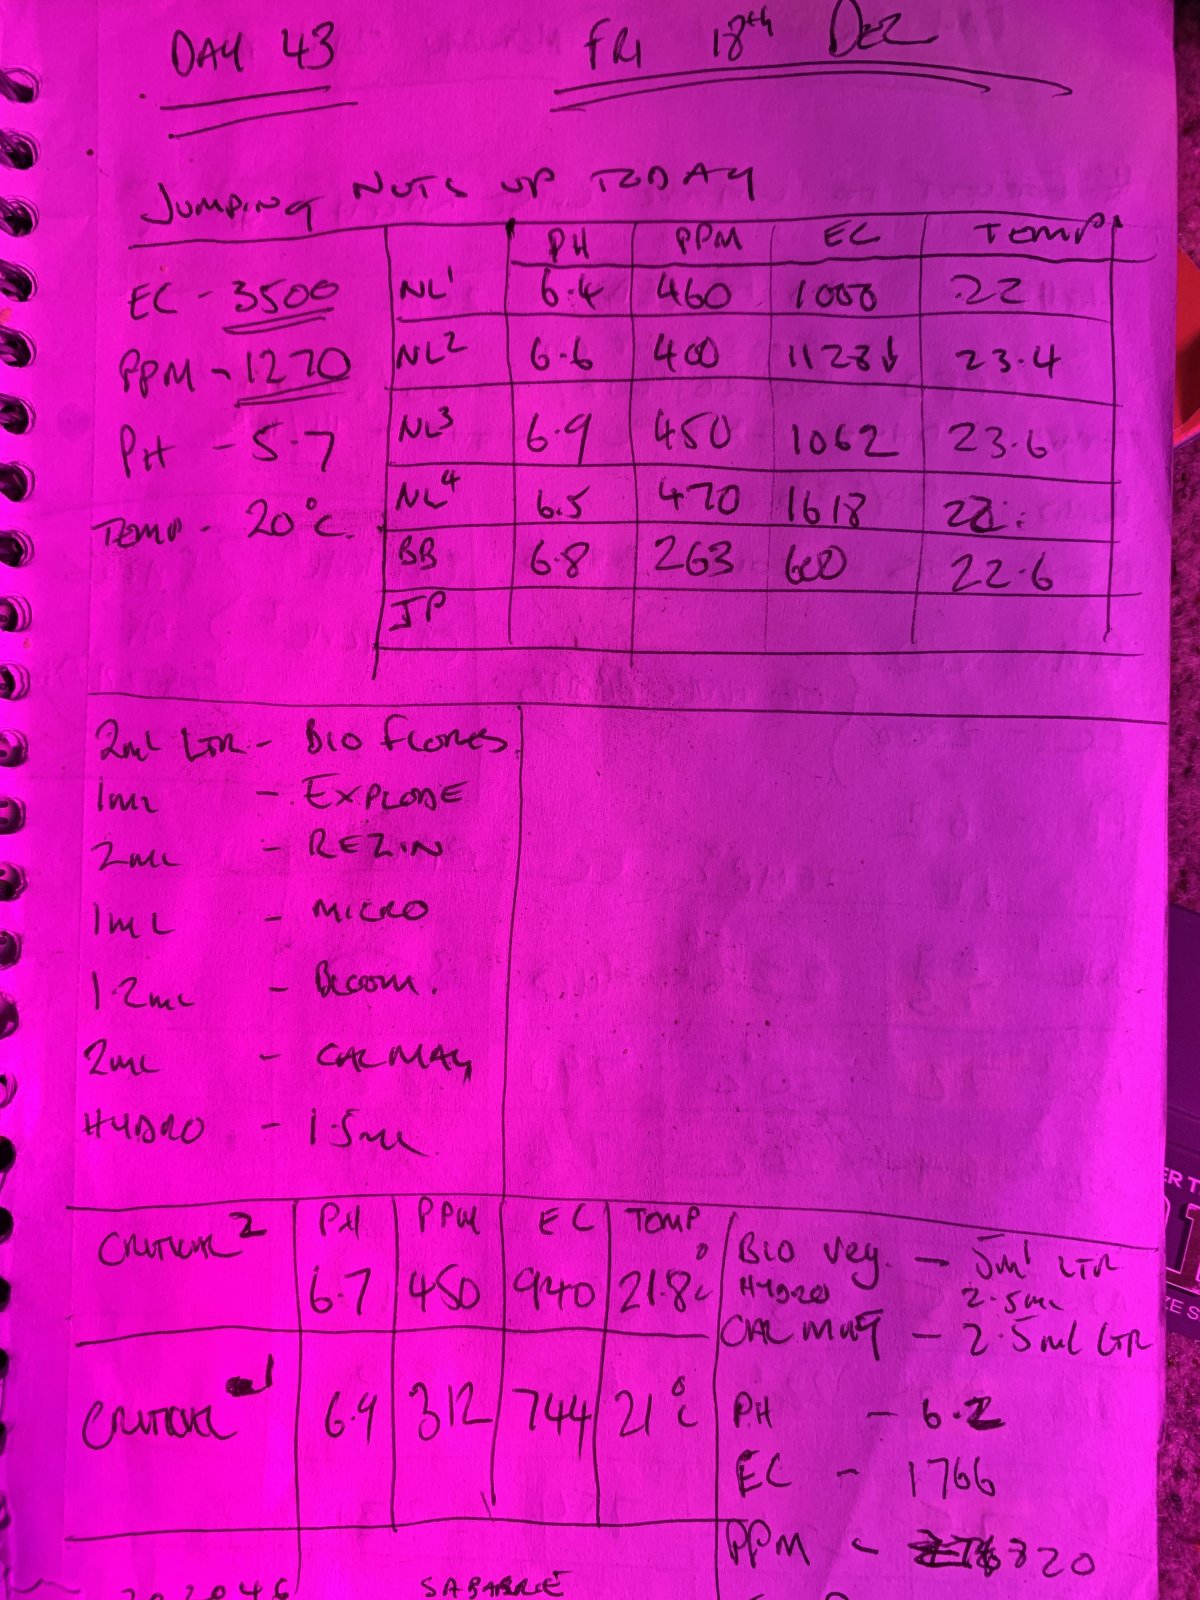 DAY 43 FRI 18th DEZ
JUMPING NUTS UP TODAY
EC - 3500
PPM - 1270
PH - 5.7
TEMP - 20°C.
PH PPM EC TEMP
NL1 6.4 460 1000 22
NL2 6.6 400 1128↓ 23.4
NL3 6.9 450 1062 23.6
NL4 6.5 470 1618 22
BB 6.8 263 600 22.6
JP
2ml LTR - BIO FLORES
1ML - EXPLODE
2ML - REZIN
1ML - MICRO
1.2ML - BLOOM.
2ML - CALMAG
HYDRO - 1.5ML
PH PPM EC TEMP
CRITICAL2 6.7 450 940 21.8°C
CRITICAL1 6.9 312 744 21°C
BIO Veg. - 5ml LTR
HYDRO 2.5ML
CALMAG - 2.5ml LTR
PH - 6.2
EC - 1766
PPM - 820